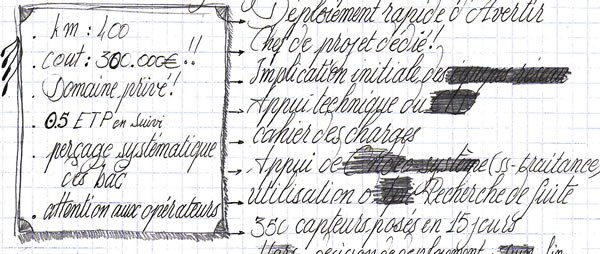 km : 400
cout : 300.000€ !!
Domaine privé !
0.5 ETP en suivi
perçage systématique
des bac
attention aux opérateurs
Déploiement rapide d'Avertir
Chef de projet dédié !
Implication initiale des
Appui technique du
cahier des charges
Appui de système (ss-traitance)
utilisation d' Recherche de fuite
350 capteurs posés en 15 jours